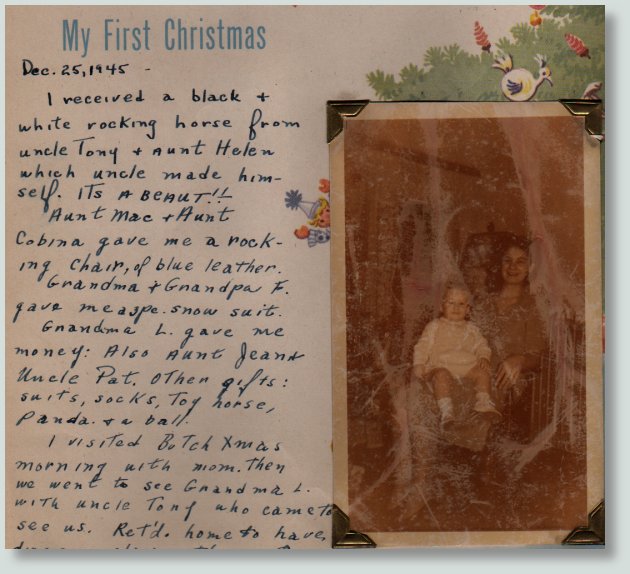 My First Christmas
Dec. 25, 1945 -
I received a black +
white rocking horse from
uncle Tony + Aunt Helen
which uncle made him-
self. ITS A BEAUT!!
Aunt Mac + Aunt
Cobina gave me a rock-
ing chair, of blue leather.
Grandma + Grandpa F.
gave me a 3pc. snow suit.
Grandma L. gave me
money: Also Aunt Jean +
Uncle Pat. Other gifts:
suits, socks, toy horse,
panda. + a ball.
I visited Butch Xmas
morning with mom. Then
we went to see Grandma L.
with uncle Tony who came to
see us. Ret'd. home to have,